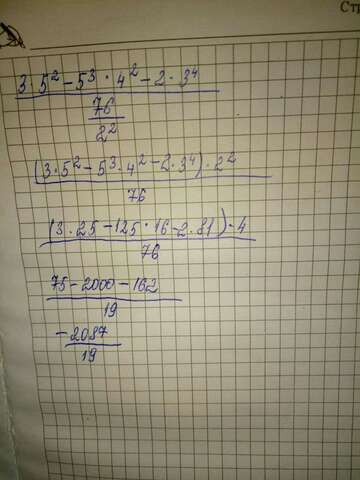 Стр
3·5² – 5³ · 4² – 2 · 3⁴
76
2²
(3·5² – 5³·4² – 2·3⁴)·2²
76
(3·25 – 125·16 – 2·81)·4
76
75 – 2000 – 162
19
– 2087
19